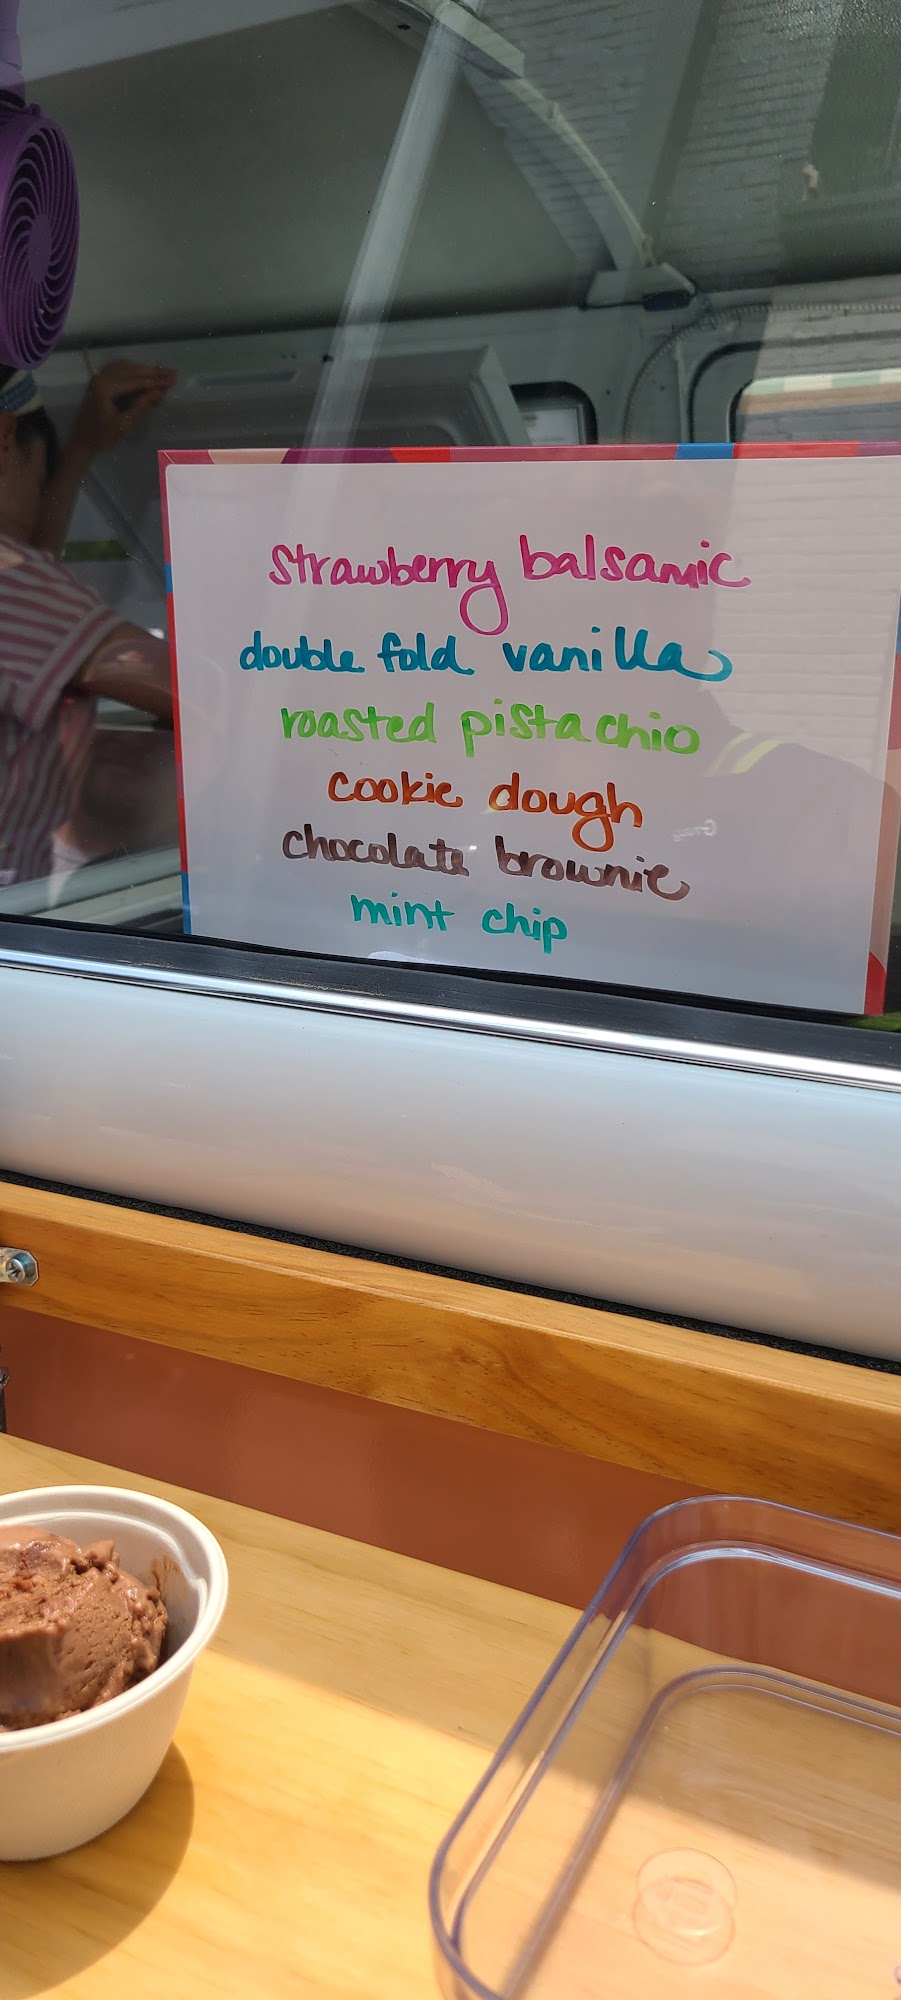 strawberry balsamic
double fold vanilla
roasted pistachio
cookie dough
chocolate brownie
mint chip